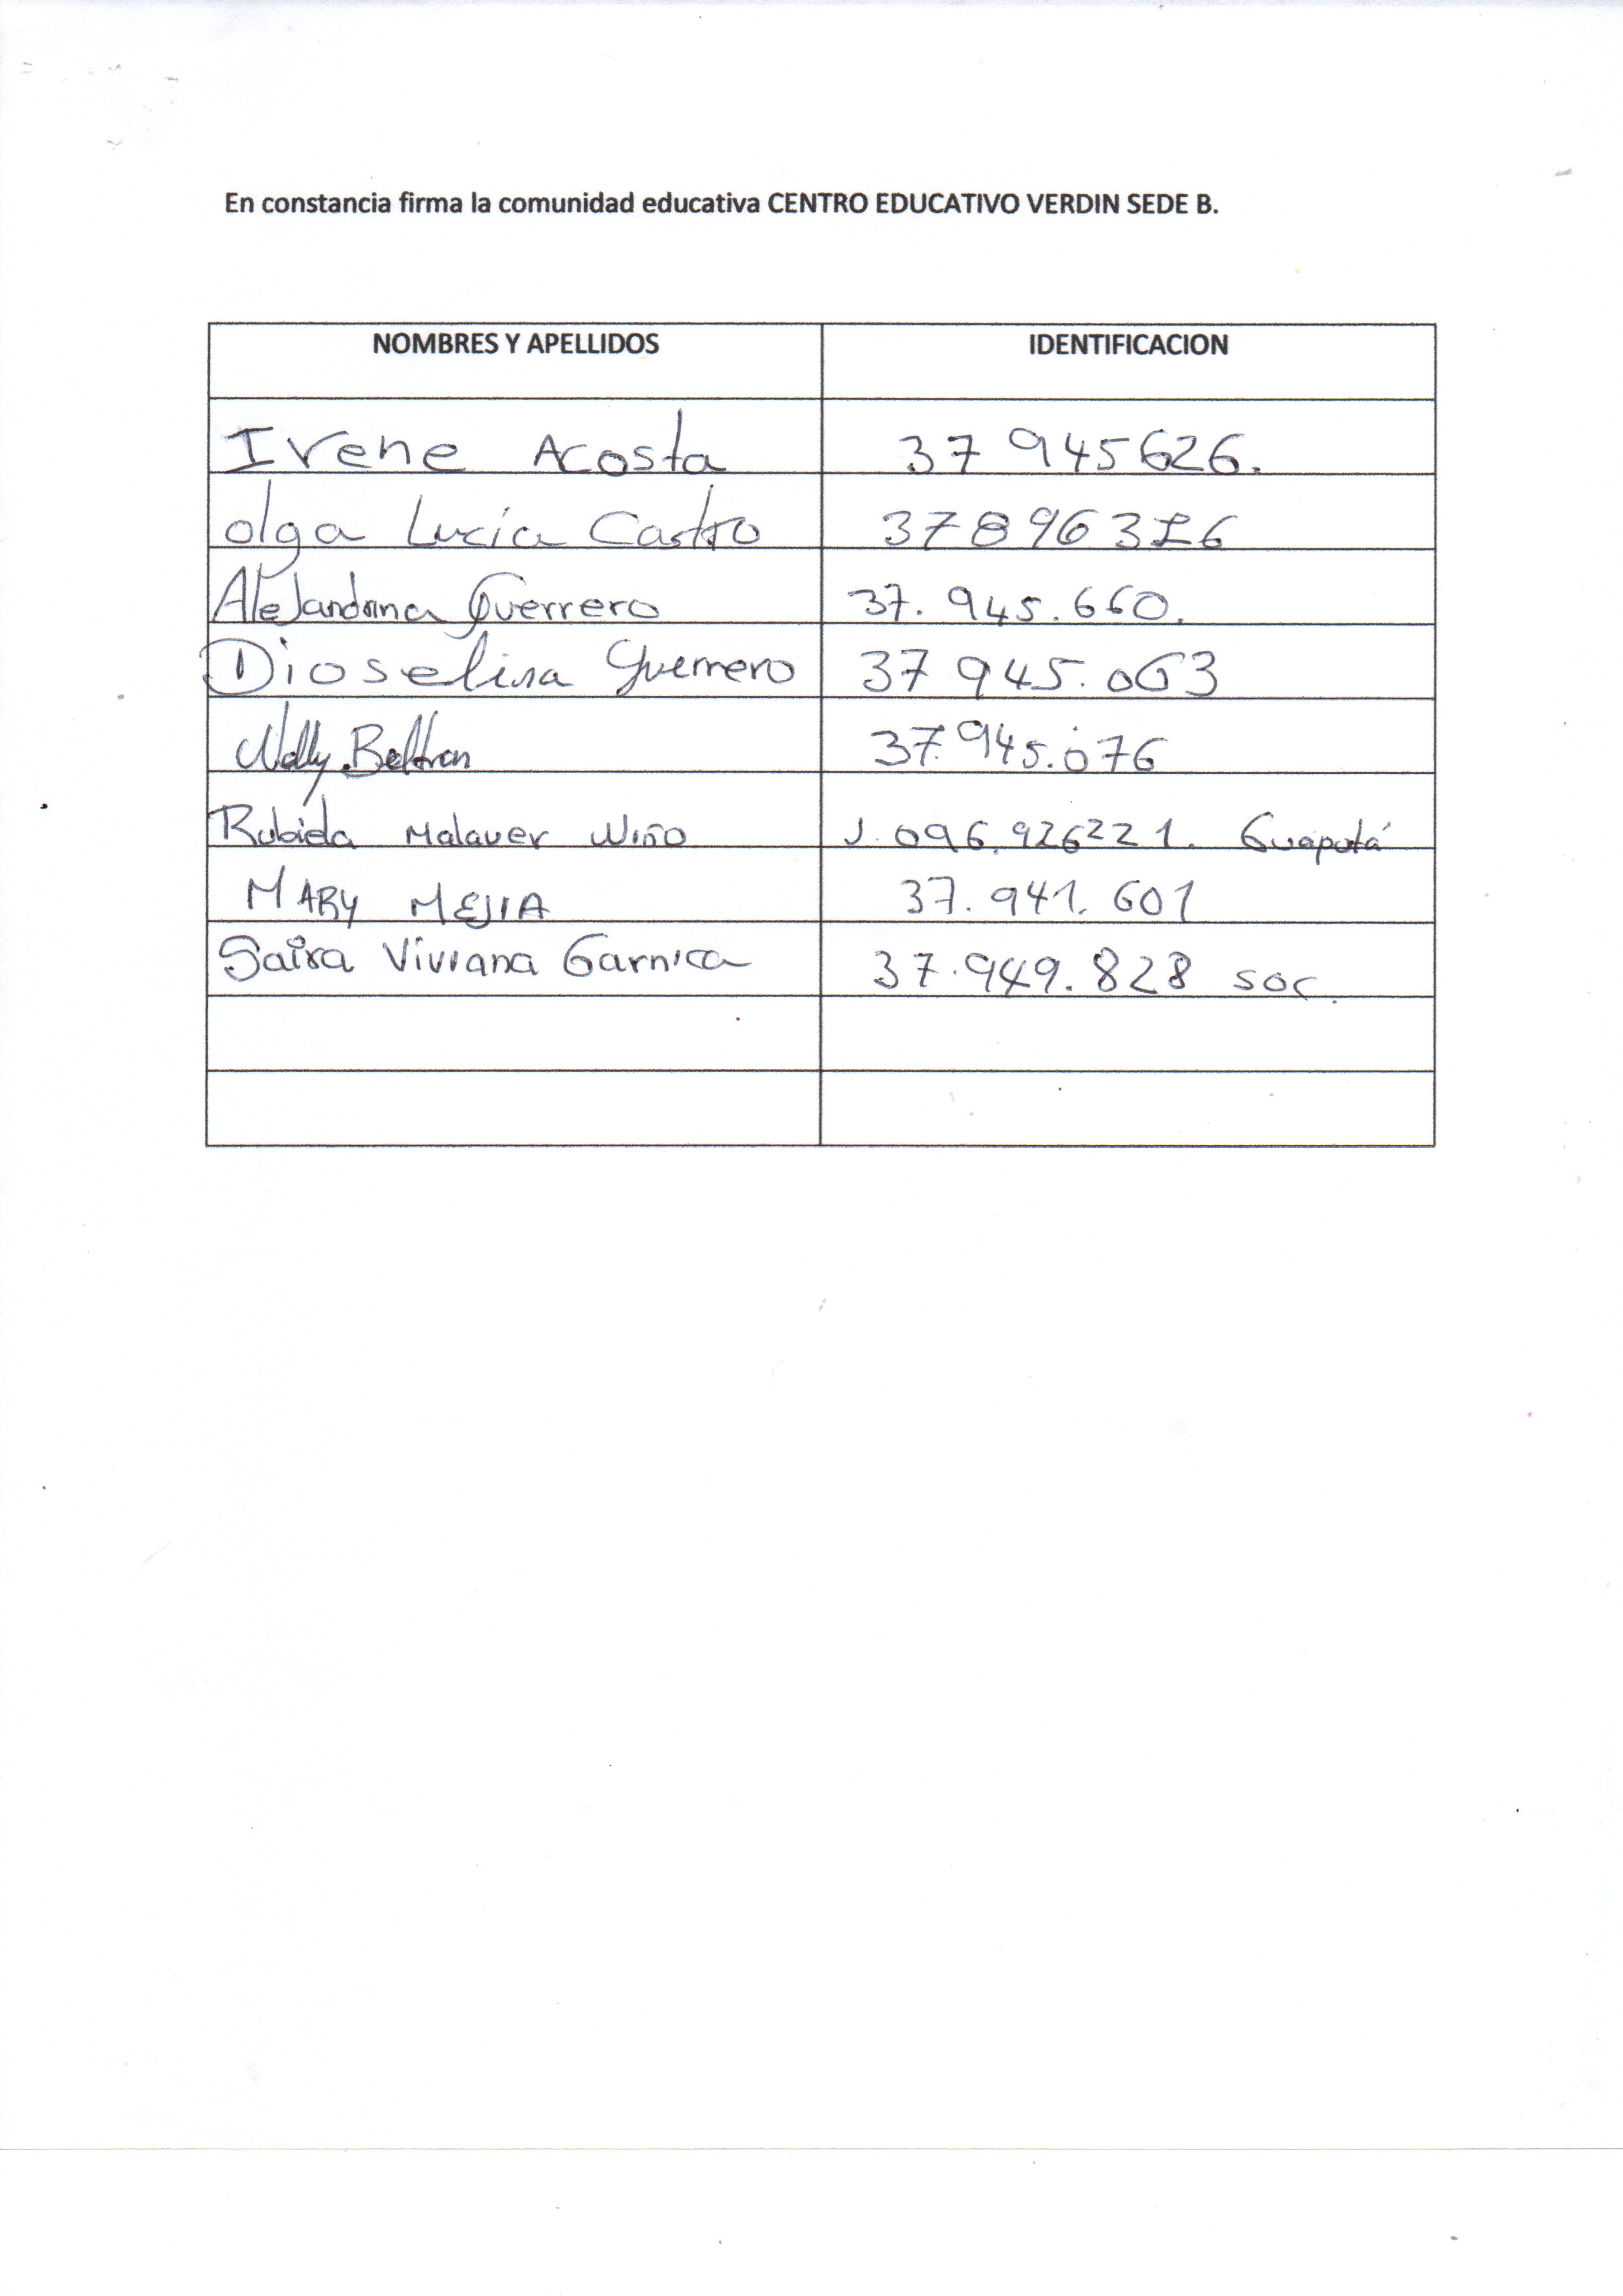 En constancia firma la comunidad educativa CENTRO EDUCATIVO VERDIN SEDE B.
NOMBRES Y APELLIDOS IDENTIFICACION
Irene Acosta 37 945626.
olga Lucía Castro 37896316
Alejandrina Guerrero 37.945.660.
Dioselina Guerrero 37 945.063
Nelly Beltran 37.945.076
Rubiela Malaver Niño 1.096.926221. Guapotá
MARY MEJIA 37.941.601
Saira Viviana Garnica 37.949.828 soc.